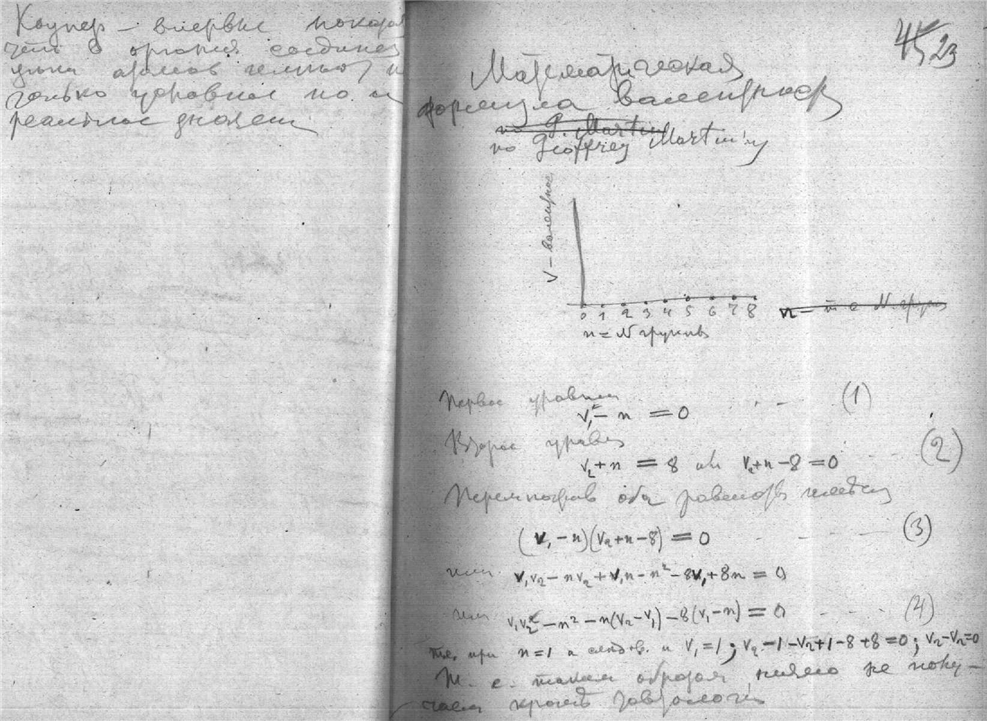 Каупер – впервые показал
что в органич. соединен
цепи атомов
только
реальное
45 23
Математическая
формула валентности
по G. Martin
по Geoffrey Martin'у
V – валентнос
0 1 2 3 4 5 6 7 8
n = N группы
n – N групп
Первое уравнен
v₁ – n = 0 (1)
Второе уравн
v₂ + n = 8 или v₂ + n – 8 = 0 (2)
Перемножив оба равенства имеем
(v₁ – n)(v₂ + n – 8) = 0 (3)
или v₁v₂ – nv₂ + v₁n – n² – 8v₁ + 8n = 0
или v₁v₂ – n² – n(v₂ – v₁) – 8(v₁ – n) = 0 (4)
т.е. при n = 1 и следов. и v₁ = 1; v₂ – 1 – v₂ + 1 – 8 + 8 = 0; v₂ – v₂ = 0
Т. е. таким образом ничего не полу–
чаем кроме тавтологии